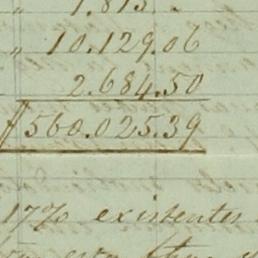 " 1.813. "
" 10.129.06
2.684.50
ƒ 560.025.39
17% existentes